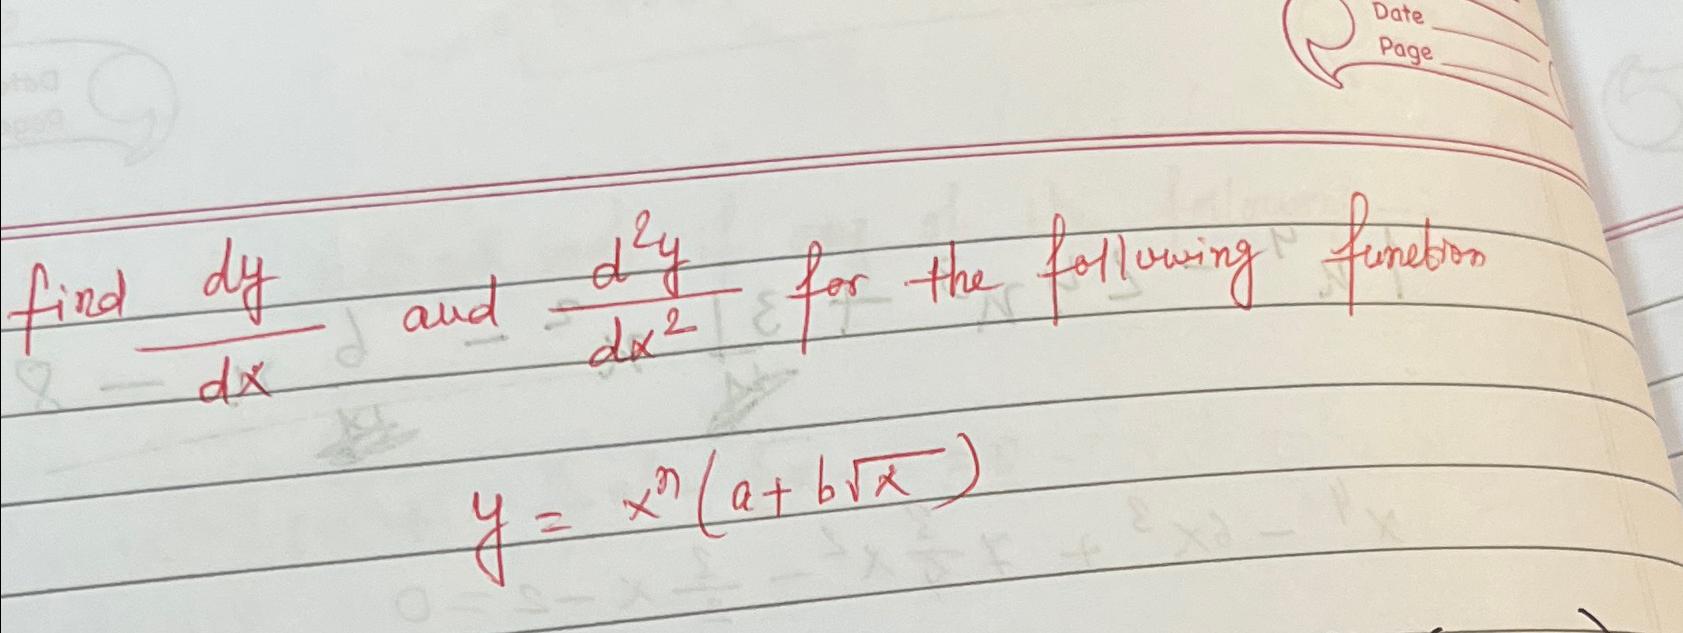 Date
Page
find dy/dx and d²y/dx² for the following function
y = xⁿ(a + b√x)